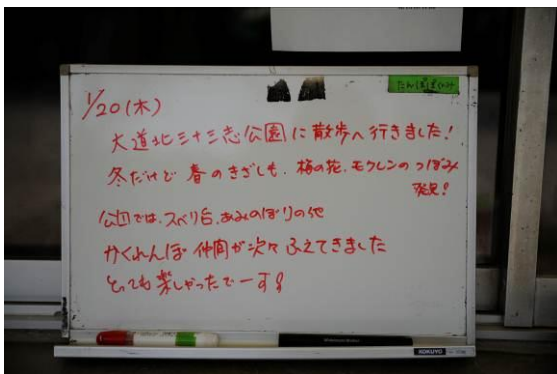 たんぽぽぐみ
1/20(木)
大道北三十三志公園に散歩へ行きました!
冬だけど春のきざしも、梅の花、モクレンのつぼみ
発見!
公園では、スベリ台、あみのぼりの他
かくれんぼ仲間が次々ふえてきました
とっても楽しかったでーす
KOKUYO